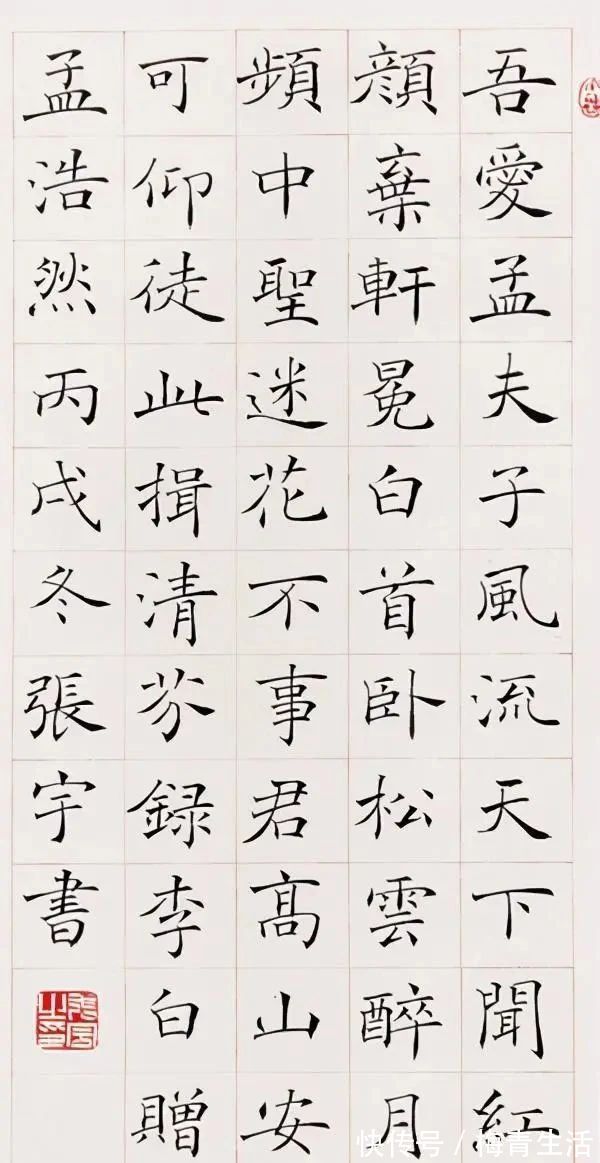 吾愛孟夫子風流天下聞紅
顔棄軒冕白首卧松雲醉月
頻中聖迷花不事君髙山安
可仰徒此揖清芬録李白贈
孟浩然丙戌冬張宇書
快传号／梅青生活